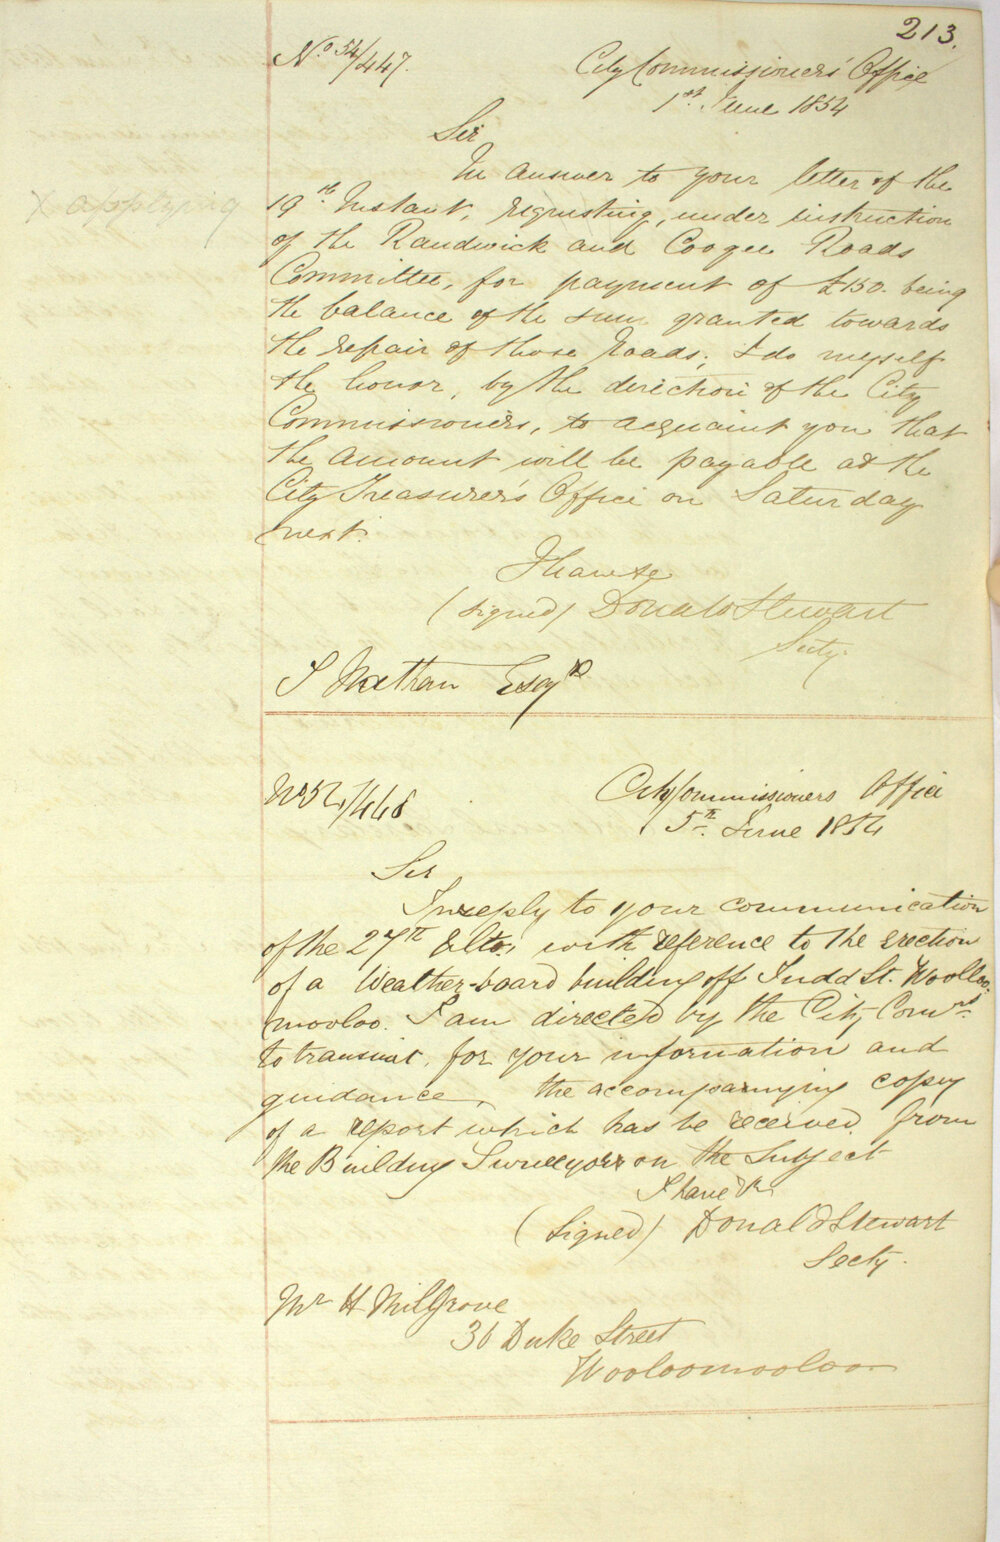 213.
No 54/447.
City Commissioners' Office
1st June 1854
Sir
In answer to your letter of the
x applying
19th Instant, requesting, under instruction
of the Randwick and Coogee Roads
Committee, for payment of £150. being
the balance of the sum granted towards
the repair of those Roads, I do myself
the honor, by the direction of the City
Commissioners, to acquaint you that
the amount will be payable at the
City Treasurer's Office on Saturday
next.
I have &c
(signed) Donald Stewart
Secty.
S Nathan Esqre
No 54/448
City Commissioners Office
5th June 1854
Sir
In reply to your communication
of the 27th Ulto, with reference to the erection
of a Weather-board building off Judd St. Woolloo-
mooloo. I am directed by the City Comrs.
to transmit, for your information and
guidance, the accompanying copy
of a report which has be received from
the Building Surveyors on the subject
I have &c
(Signed) Donald Stewart
Secty.
Mr H Millgrove
36 Duke Street
Wooloomooloo